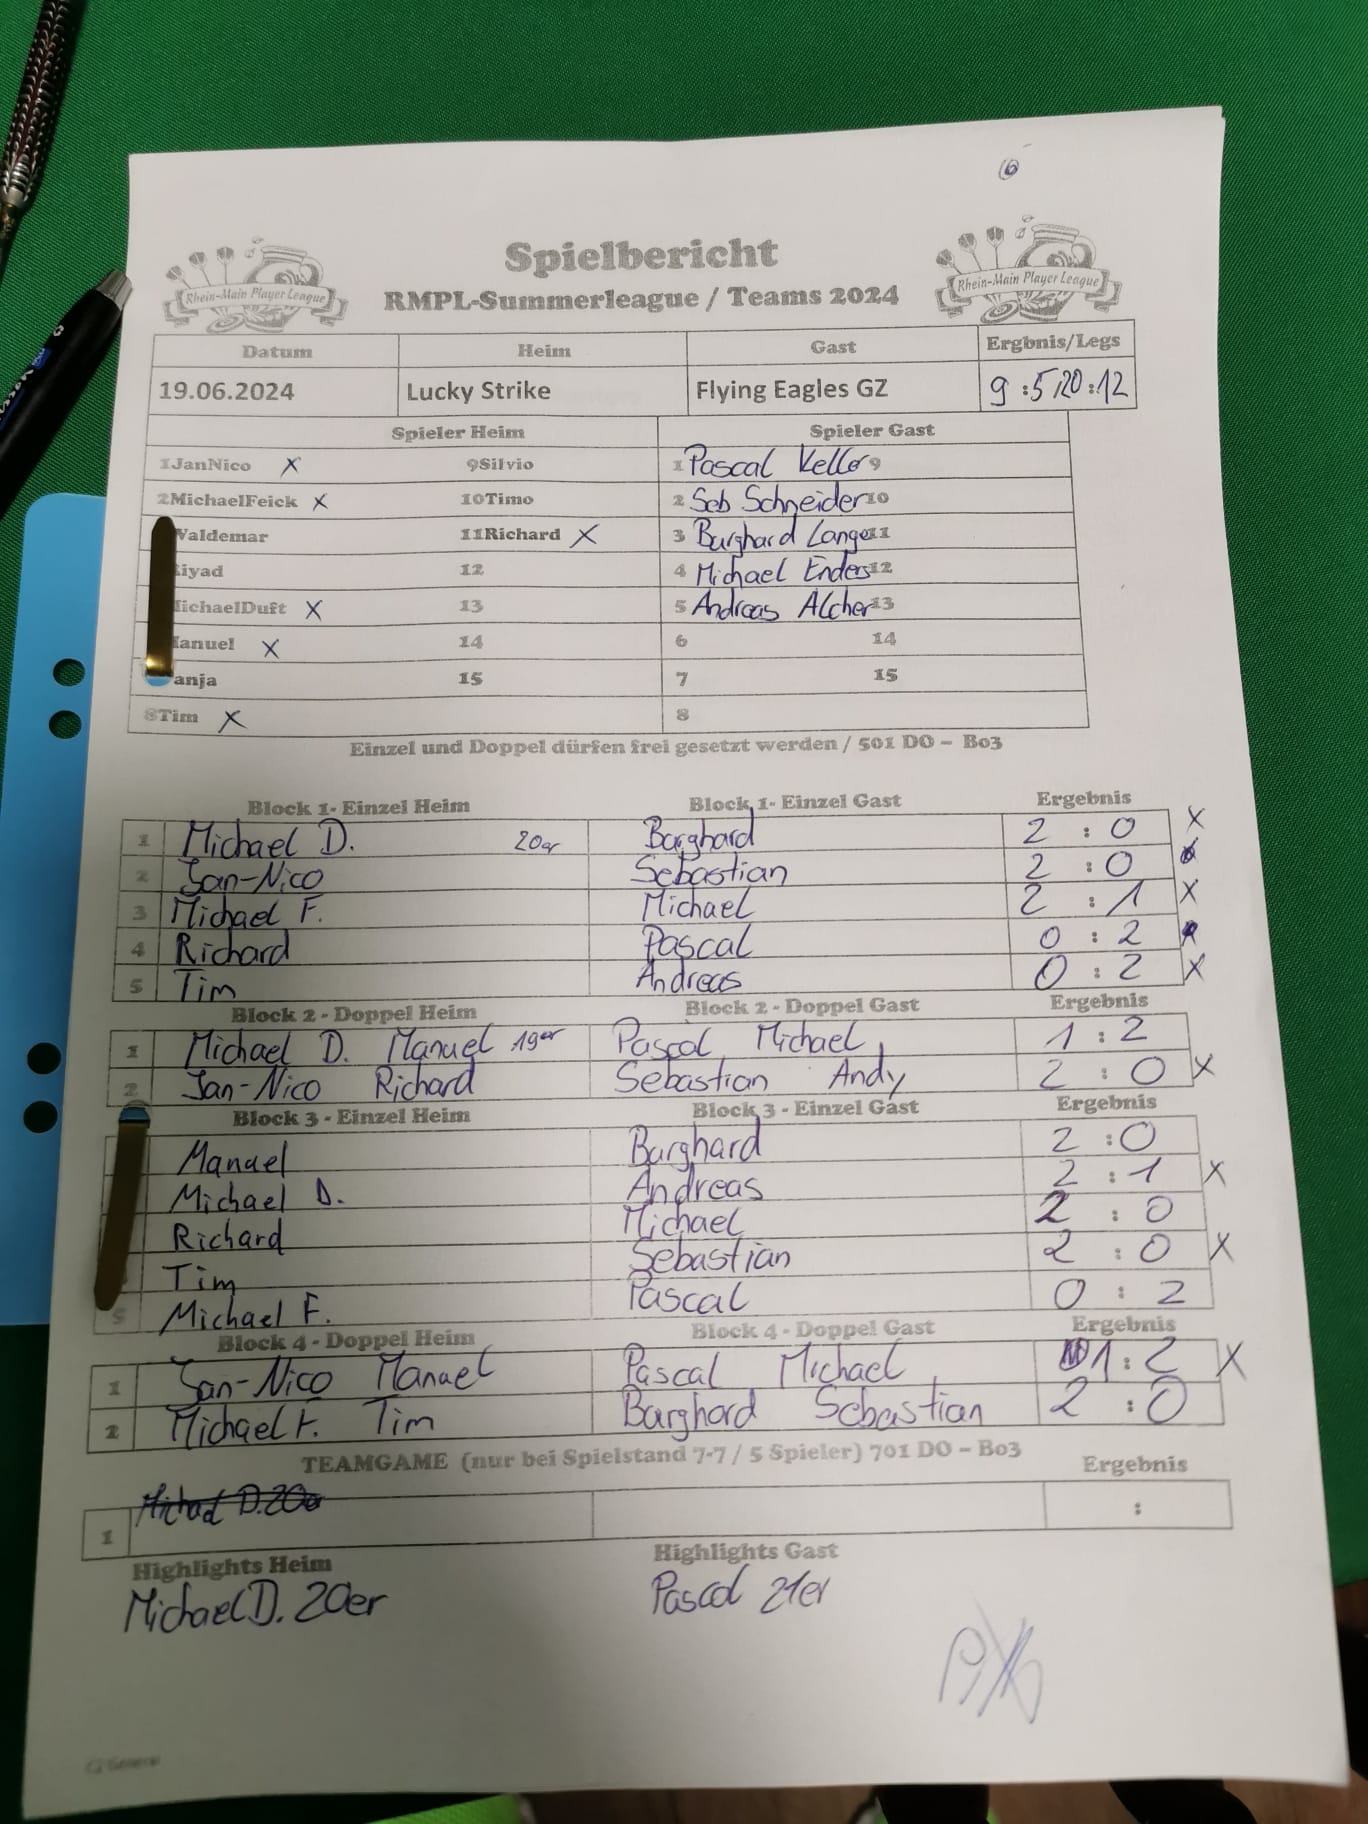 6
Spielbericht
RMPL-Summerleague / Teams 2024
Rhein-Main Player League
Rhein-Main Player League
Datum Heim Gast Ergbnis/Legs
19.06.2024 Lucky Strike Flying Eagles GZ 9:5/20:12
Spieler Heim Spieler Gast
1JanNico X 9Silvio 1 Pascal Keller 9
2MichaelFeick X 10Timo 2 Seb Schneider 10
Valdemar 11Richard X 3 Burghard Lange 11
iyad 12 4 Michael Enders 12
ichaelDuft X 13 5 Andreas Alcher 13
anuel X 14 6 14
anja 15 7 15
8Tim X 8
Einzel und Doppel dürfen frei gesetzt werden / 501 DO – Bo3
Block 1- Einzel Heim Block 1- Einzel Gast Ergebnis
1 Michael D. 20er Burghard 2 : 0 X
2 Jan-Nico Sebastian 2 : 0
3 Michael F. Michael 2 : 1 X
4 Richard Pascal 0 : 2
5 Tim Andreas 0 : 2 X
Block 2 - Doppel Heim Block 2 - Doppel Gast Ergebnis
1 Michael D. Manuel 19er Pascal Michael 1 : 2
2 Jan-Nico Richard Sebastian Andy 2 : 0 X
Block 3 - Einzel Heim Block 3 - Einzel Gast Ergebnis
Manuel Burghard 2 : 0
Michael D. Andreas 2 : 1 X
Richard Michael 2 : 0
Tim Sebastian 2 : 0 X
5 Michael F. Pascal 0 : 2
Block 4 - Doppel Heim Block 4 - Doppel Gast Ergebnis
1 Jan-Nico Manuel Pascal Michael 1 : 2 X
2 Michael F. Tim Burghard Sebastian 2 : 0
TEAMGAME (nur bei Spielstand 7-7 / 5 Spieler) 701 DO – Bo3 Ergebnis
Michael D. 20er
1 :
Highlights Heim Highlights Gast
Michael D. 20er Pascal 21er